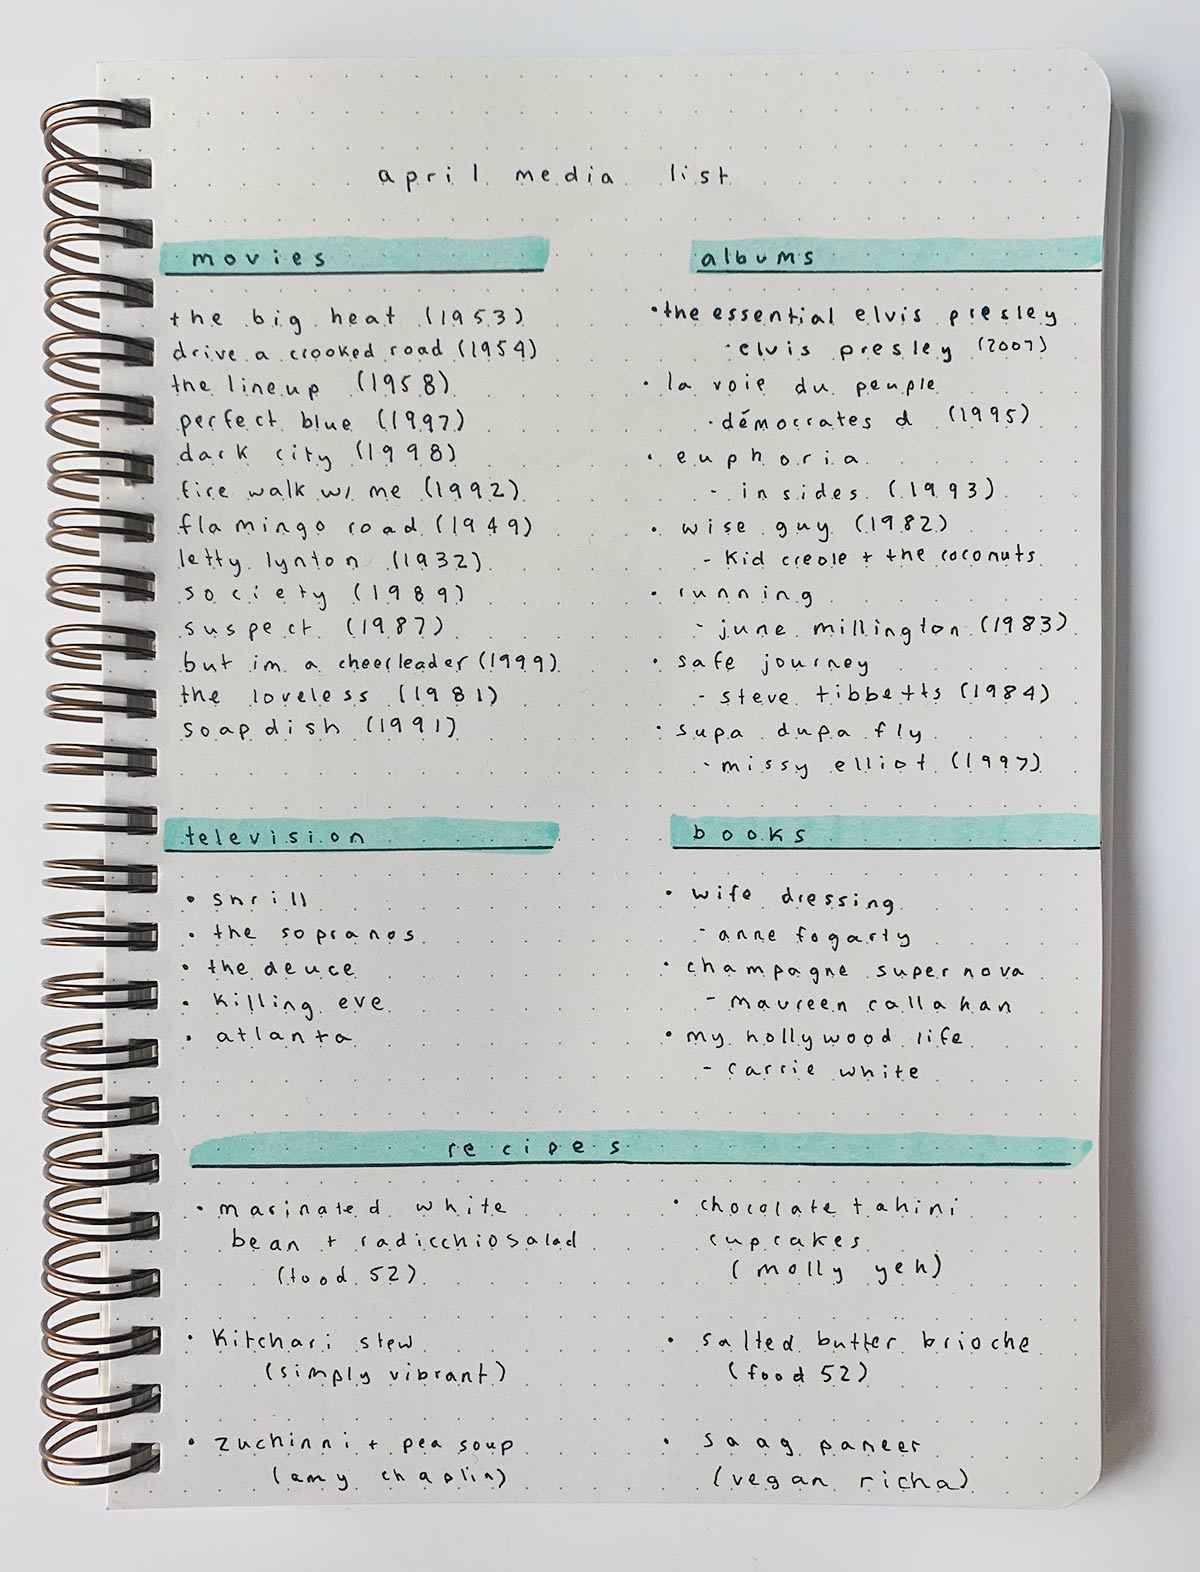 april media list
movies
the big heat (1953)
drive a crooked road (1954)
the lineup (1958)
perfect blue (1997)
dark city (1998)
fire walk w/ me (1992)
flamingo road (1949)
letty lynton (1932)
society (1989)
suspect (1987)
but im a cheerleader (1999)
the loveless (1981)
soapdish (1991)
albums
• the essential elvis presley
- elvis presley (2007)
• la voie du peuple
- démocrates d (1995)
• euphoria
- insides (1993)
• wise guy (1982)
- kid creole + the coconuts
• running
- june millington (1983)
• safe journey
- steve tibbetts (1984)
• supa dupa fly
- missy elliot (1997)
television
• shrill
• the sopranos
• the deuce
• killing eve
• atlanta
books
• wife dressing
- anne fogarty
• champagne supernova
- maureen callahan
• my hollywood life
- carrie white
recipes
• marinated white
bean + radicchio salad
(food 52)
• kitchari stew
(simply vibrant)
• zuchinni + pea soup
(amy chaplin)
• chocolate tahini
cupcakes
(molly yeh)
• salted butter brioche
(food 52)
• saag paneer
(vegan richa)